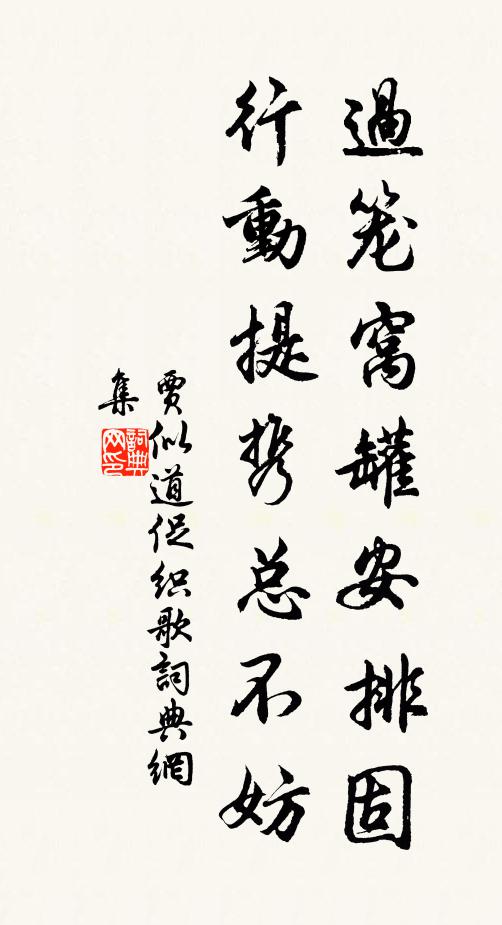 過笼窝罐安排固
行動提携总不妨
賈似道促织歌詞典網
集
詞典网印